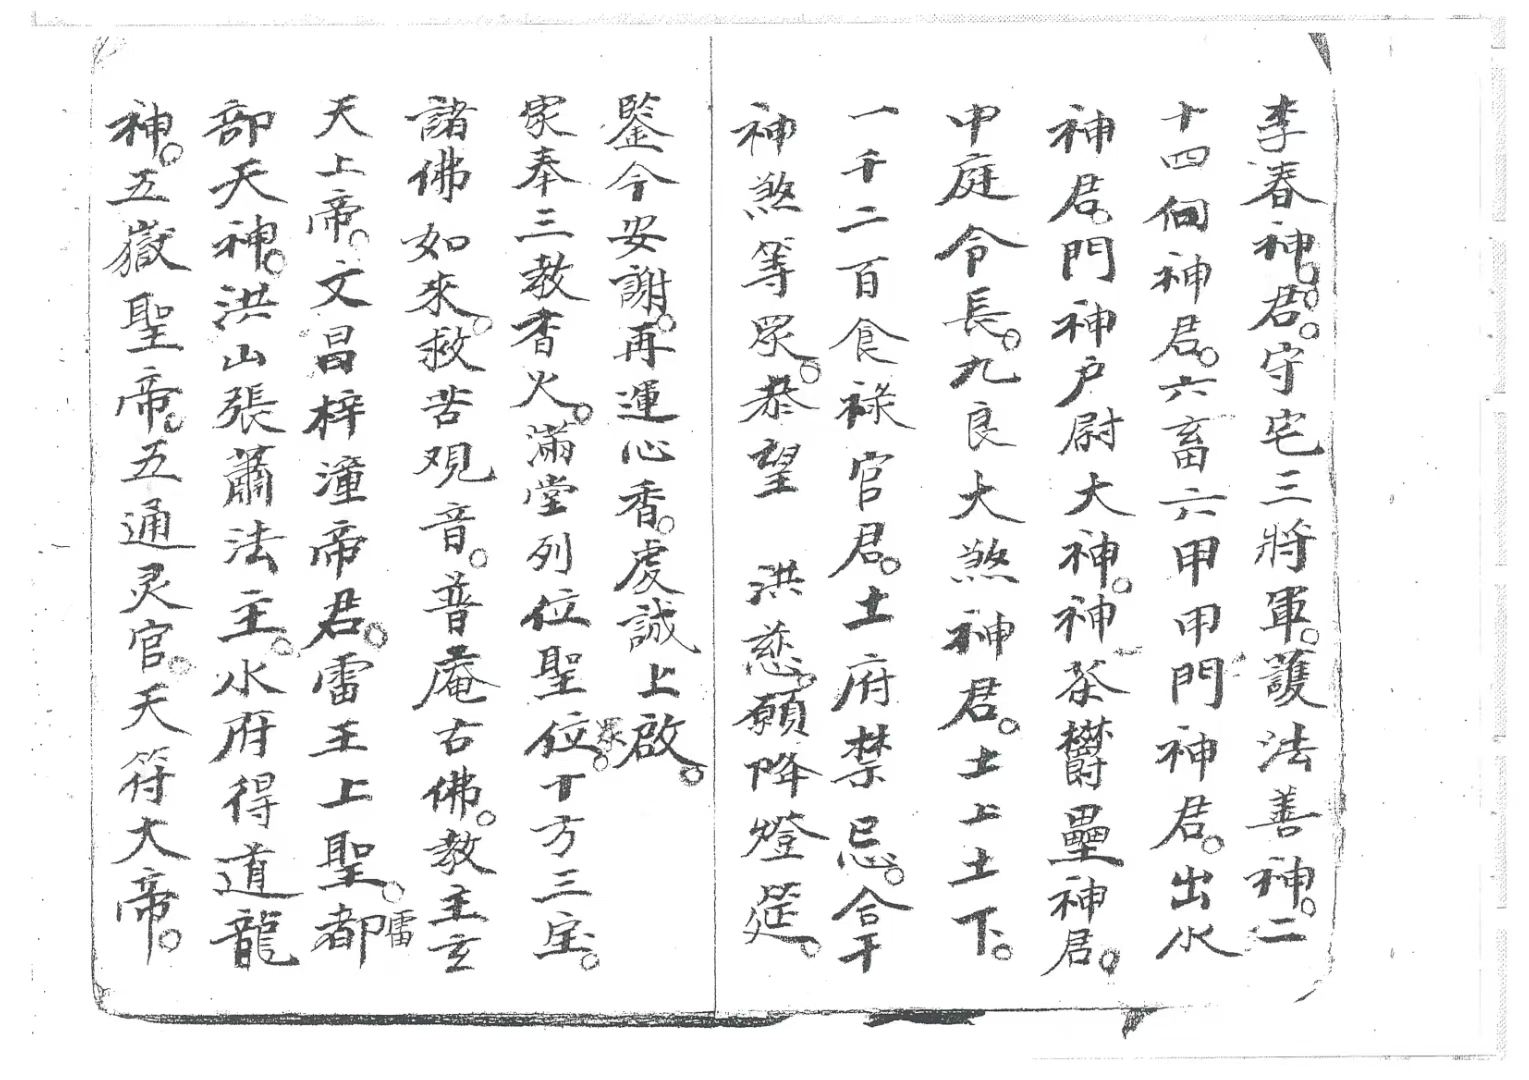 李春神。君。守宅三將軍。護法善神。二
十四個神君。六畜六甲甲門神君。出水
神君。門神户尉大神。神茶欝壘神君。
中庭令長。九良大煞神君。土上土下。
一千二百食祿官君。土府禁忌。合干
神煞等眾。恭望 洪慈。願降燈筵。
鑒今安謝。再運心香。虔誠上啟。
家奉三教香火。滿堂列位聖位。眾十方三宝。
諸佛如來。救苦观音。普庵古佛。教主玄
天上帝。文昌梓潼帝君。雷王上聖。都雷
部天神。洪山張蕭法主。水府得道龍
神。五嶽聖帝。五通灵官。天符大帝。